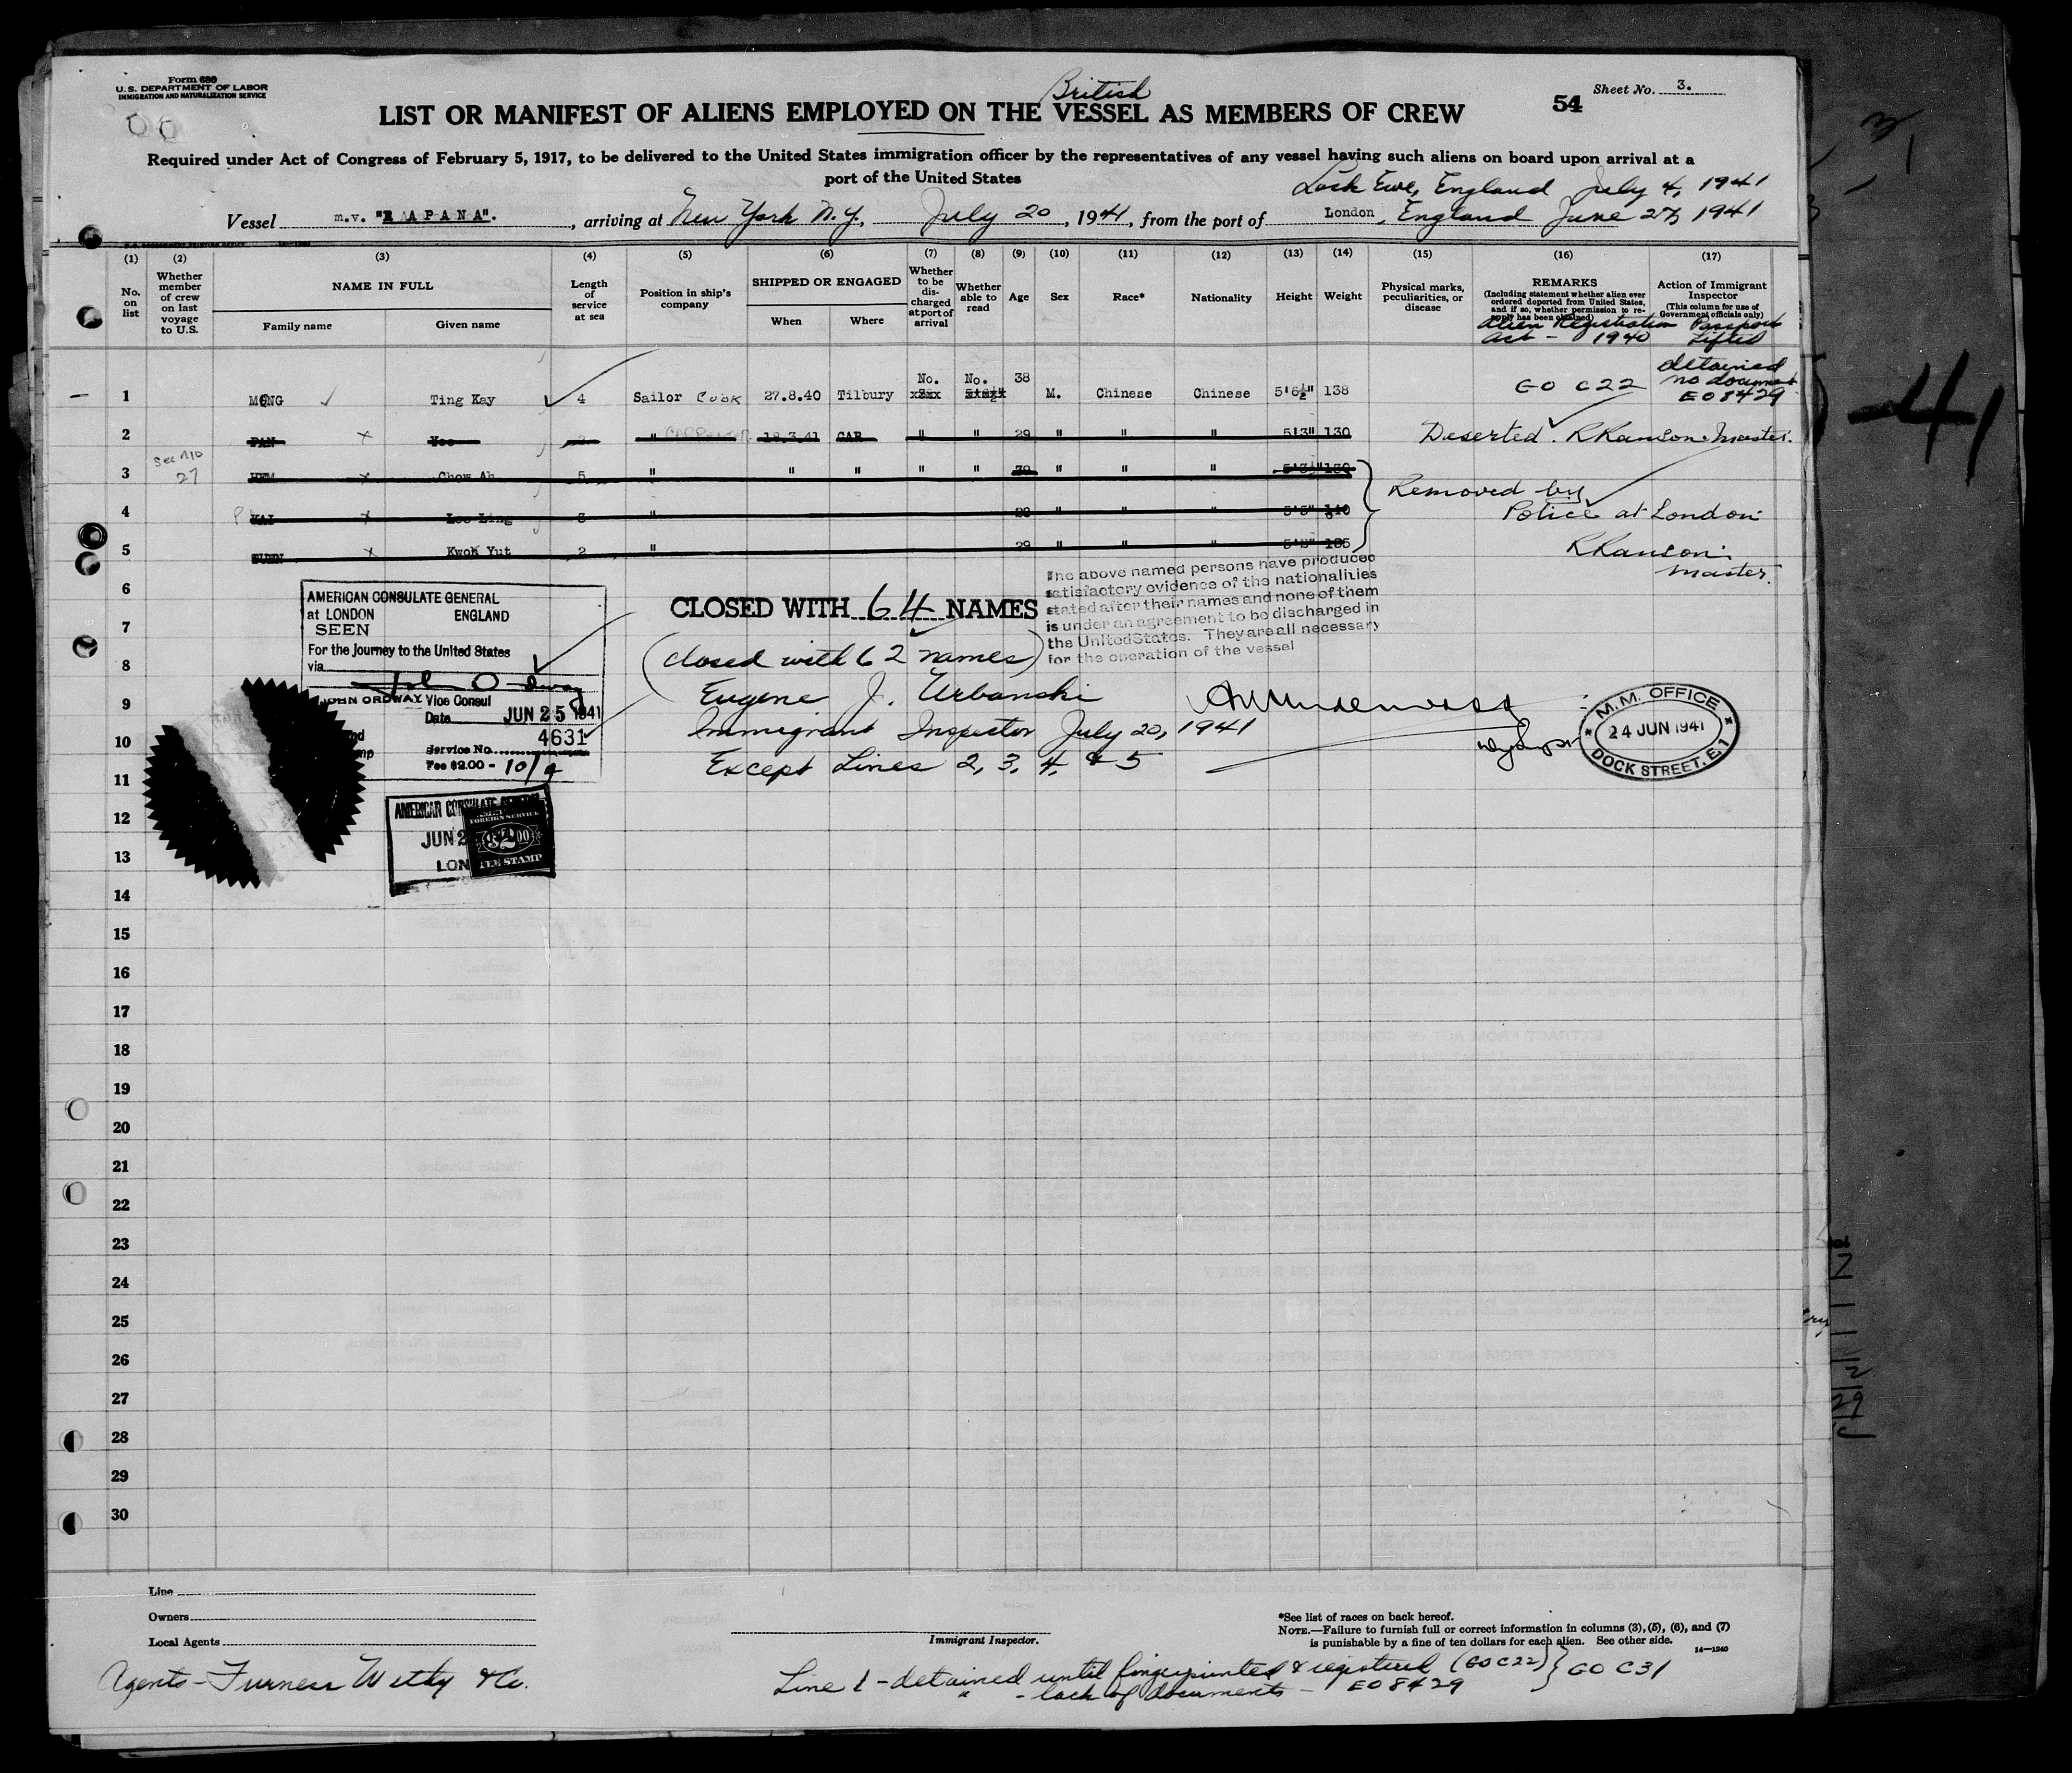 Form 680
U.S. DEPARTMENT OF LABOR
IMMIGRATION AND NATURALIZATION SERVICE
British
LIST OR MANIFEST OF ALIENS EMPLOYED ON THE VESSEL AS MEMBERS OF CREW
54
Sheet No. 3.
Required under Act of Congress of February 5, 1917, to be delivered to the United States immigration officer by the representatives of any vessel having such aliens on board upon arrival at a
port of the United States
Lock Ewe, England July 4, 1941
Vessel m.v. "RAPANA". , arriving at New York N.Y., July 20, 1941, from the port of London, England June 27, 1941
(1) (2) (3) (4) (5) (6) (7) (8) (9) (10) (11) (12) (13) (14) (15) (16) (17)
No. on list
Whether member of crew on last voyage to U.S.
NAME IN FULL
Family name
Given name
Length of service at sea
Position in ship's company
SHIPPED OR ENGAGED
When
Where
Whether to be discharged at port of arrival
Whether able to read
Age
Sex
Race*
Nationality
Height
Weight
Physical marks, peculiarities, or disease
REMARKS
(Including statement whether alien ever ordered deported from United States, and if so, whether permission to reapply has been obtained)
Alien Registration Act - 1940
Action of Immigrant Inspector
(This column for use of Government officials only)
Passport Lifted
1 MONG Ting Kay 4 Sailor Cook 27.8.40 Tilbury No. No. 38 M. Chinese Chinese 5'6½" 138 GO C22 detained no document E08429
2 PAN Yee " Carpenter 18.3.41 CAR " " 29 " " " 5'3" 130 Deserted. RRanson. Master.
See 710
27
3 HEM Chow Ah 5 " " " " " 39 " " " 130
4 KAI Loo Ling 3 " 28 " " " 5'5" 140
5 Kwok Yut 2 " 29 " " " 135
Removed by
Police at London
RRanson.
Master.
6
7
8
9
10
11
12
13
14
15
16
17
18
19
20
21
22
23
24
25
26
27
28
29
30
AMERICAN CONSULATE GENERAL
at LONDON ENGLAND
SEEN
For the journey to the United States
via
JOHN ORDWAY Vice Consul
Date JUN 25 1941
4631
Service No.
Fee $2.00 - 10/9
AMERICAN CONSULATE GENERAL
JUN 2
LON
FOREIGN SERVICE
$2.00
FEE STAMP
CLOSED WITH 64 NAMES
(Closed with 62 names)
Eugene J. Urbanski
Immigrant Inspector July 20, 1941
Except Lines 2, 3, 4, & 5
The above named persons have produced
satisfactory evidence of the nationalities
stated after their names and none of them
is under an agreement to be discharged in
the United States. They are all necessary
for the operation of the vessel
M.M. OFFICE
24 JUN 1941
DOCK STREET. E.1
41
Line
Owners
Local Agents
Agents - Furness Withy & Co.
Immigrant Inspector.
*See list of races on back hereof.
NOTE.—Failure to furnish full or correct information in columns (3), (5), (6), and (7)
is punishable by a fine of ten dollars for each alien. See other side.
14—1240
Line 1 - detained until fingerprinted & registered (GO C22) } GO C31
" - lack of documents - E08429